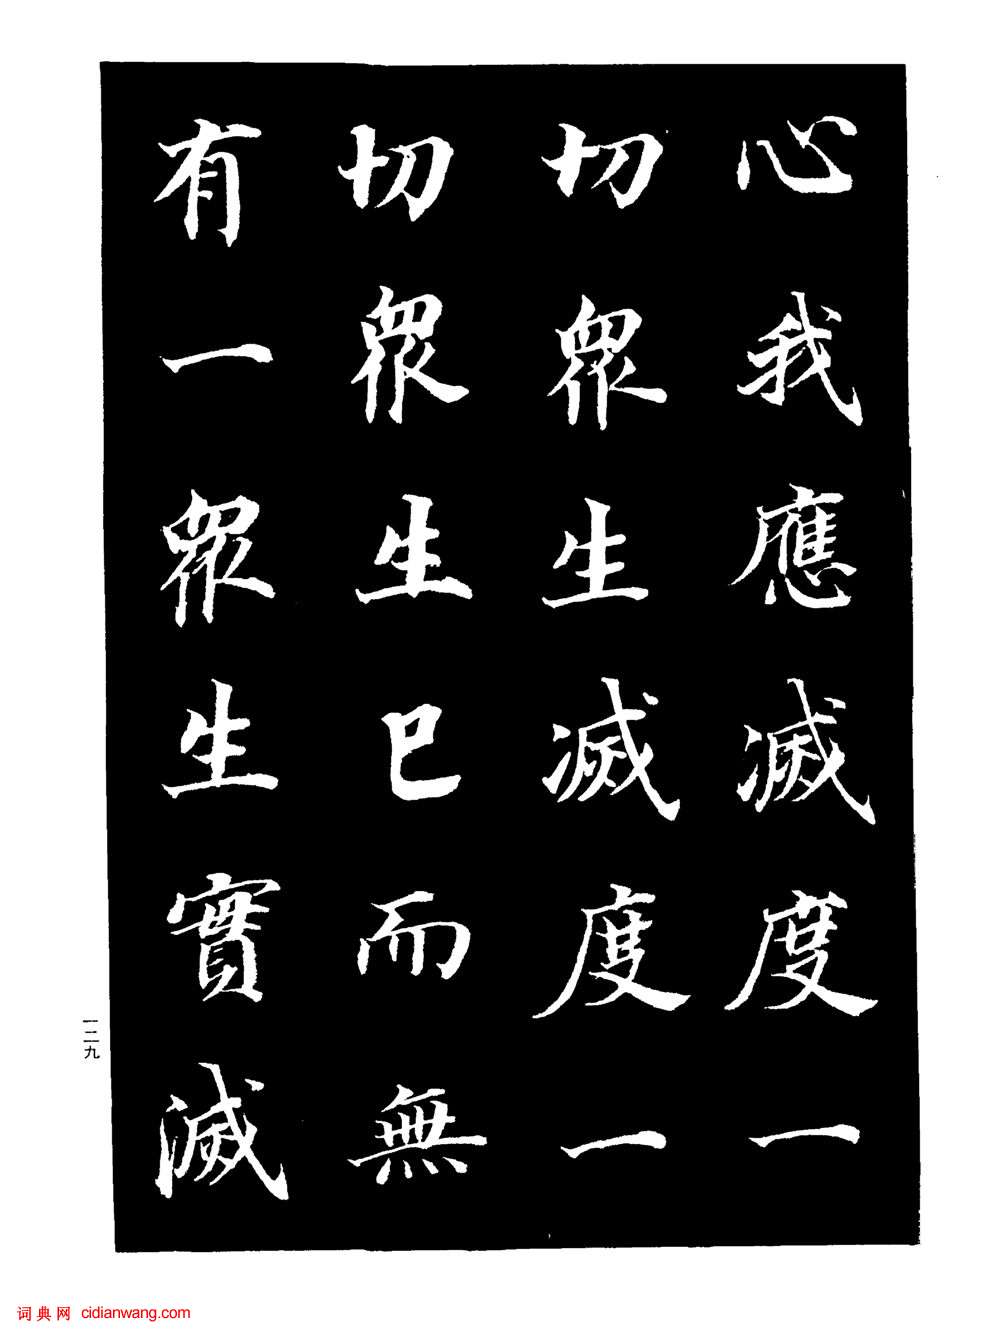 心我應滅度一
切眾生滅度一
切眾生已而無
有一眾生實滅
一二九
词典网 cidianwang.com